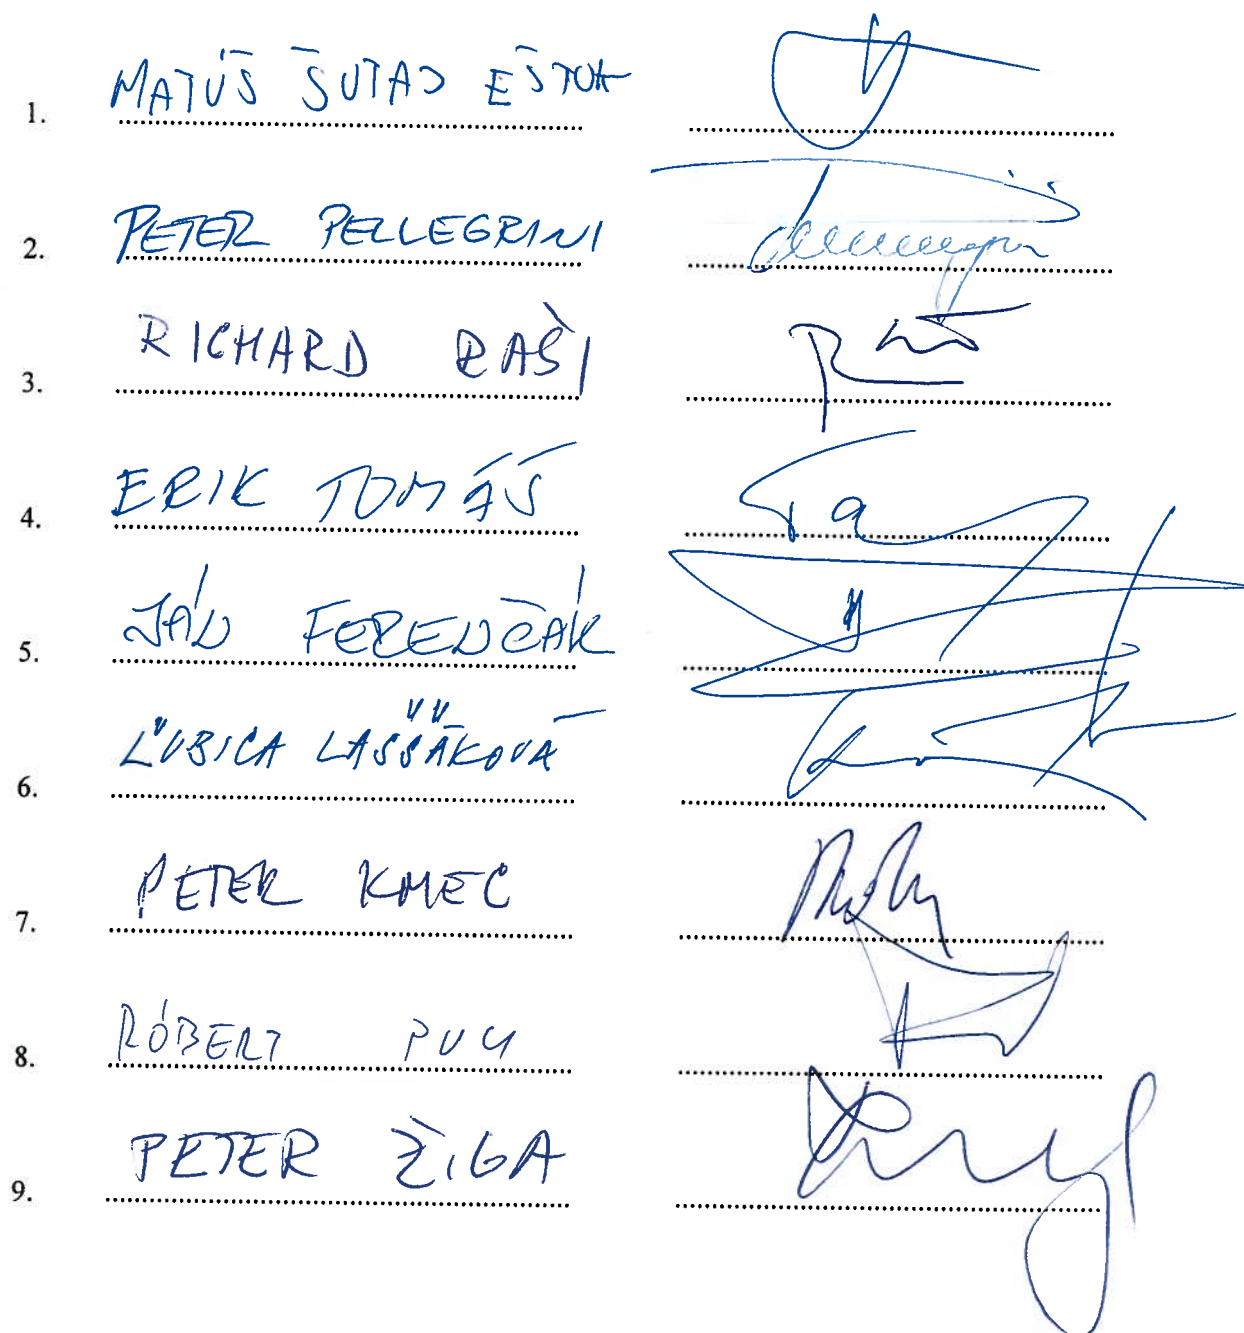 1. MATÚŠ ŠUTAJ EŠTOK
2. PETER PELLEGRINI
3. RICHARD RAŠI
4. ERIK TOMÁŠ
5. JÁN FERENČÁK
6. ĽUBICA LAŠŠÁKOVÁ
7. PETER KMEC
8. RÓBERT PUCI
9. PETER ŽIGA